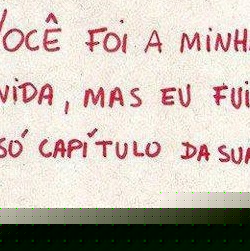 VOCÊ FOI A MINHA
VIDA, MAS EU FUI
SÓ CAPÍTULO DA SUA